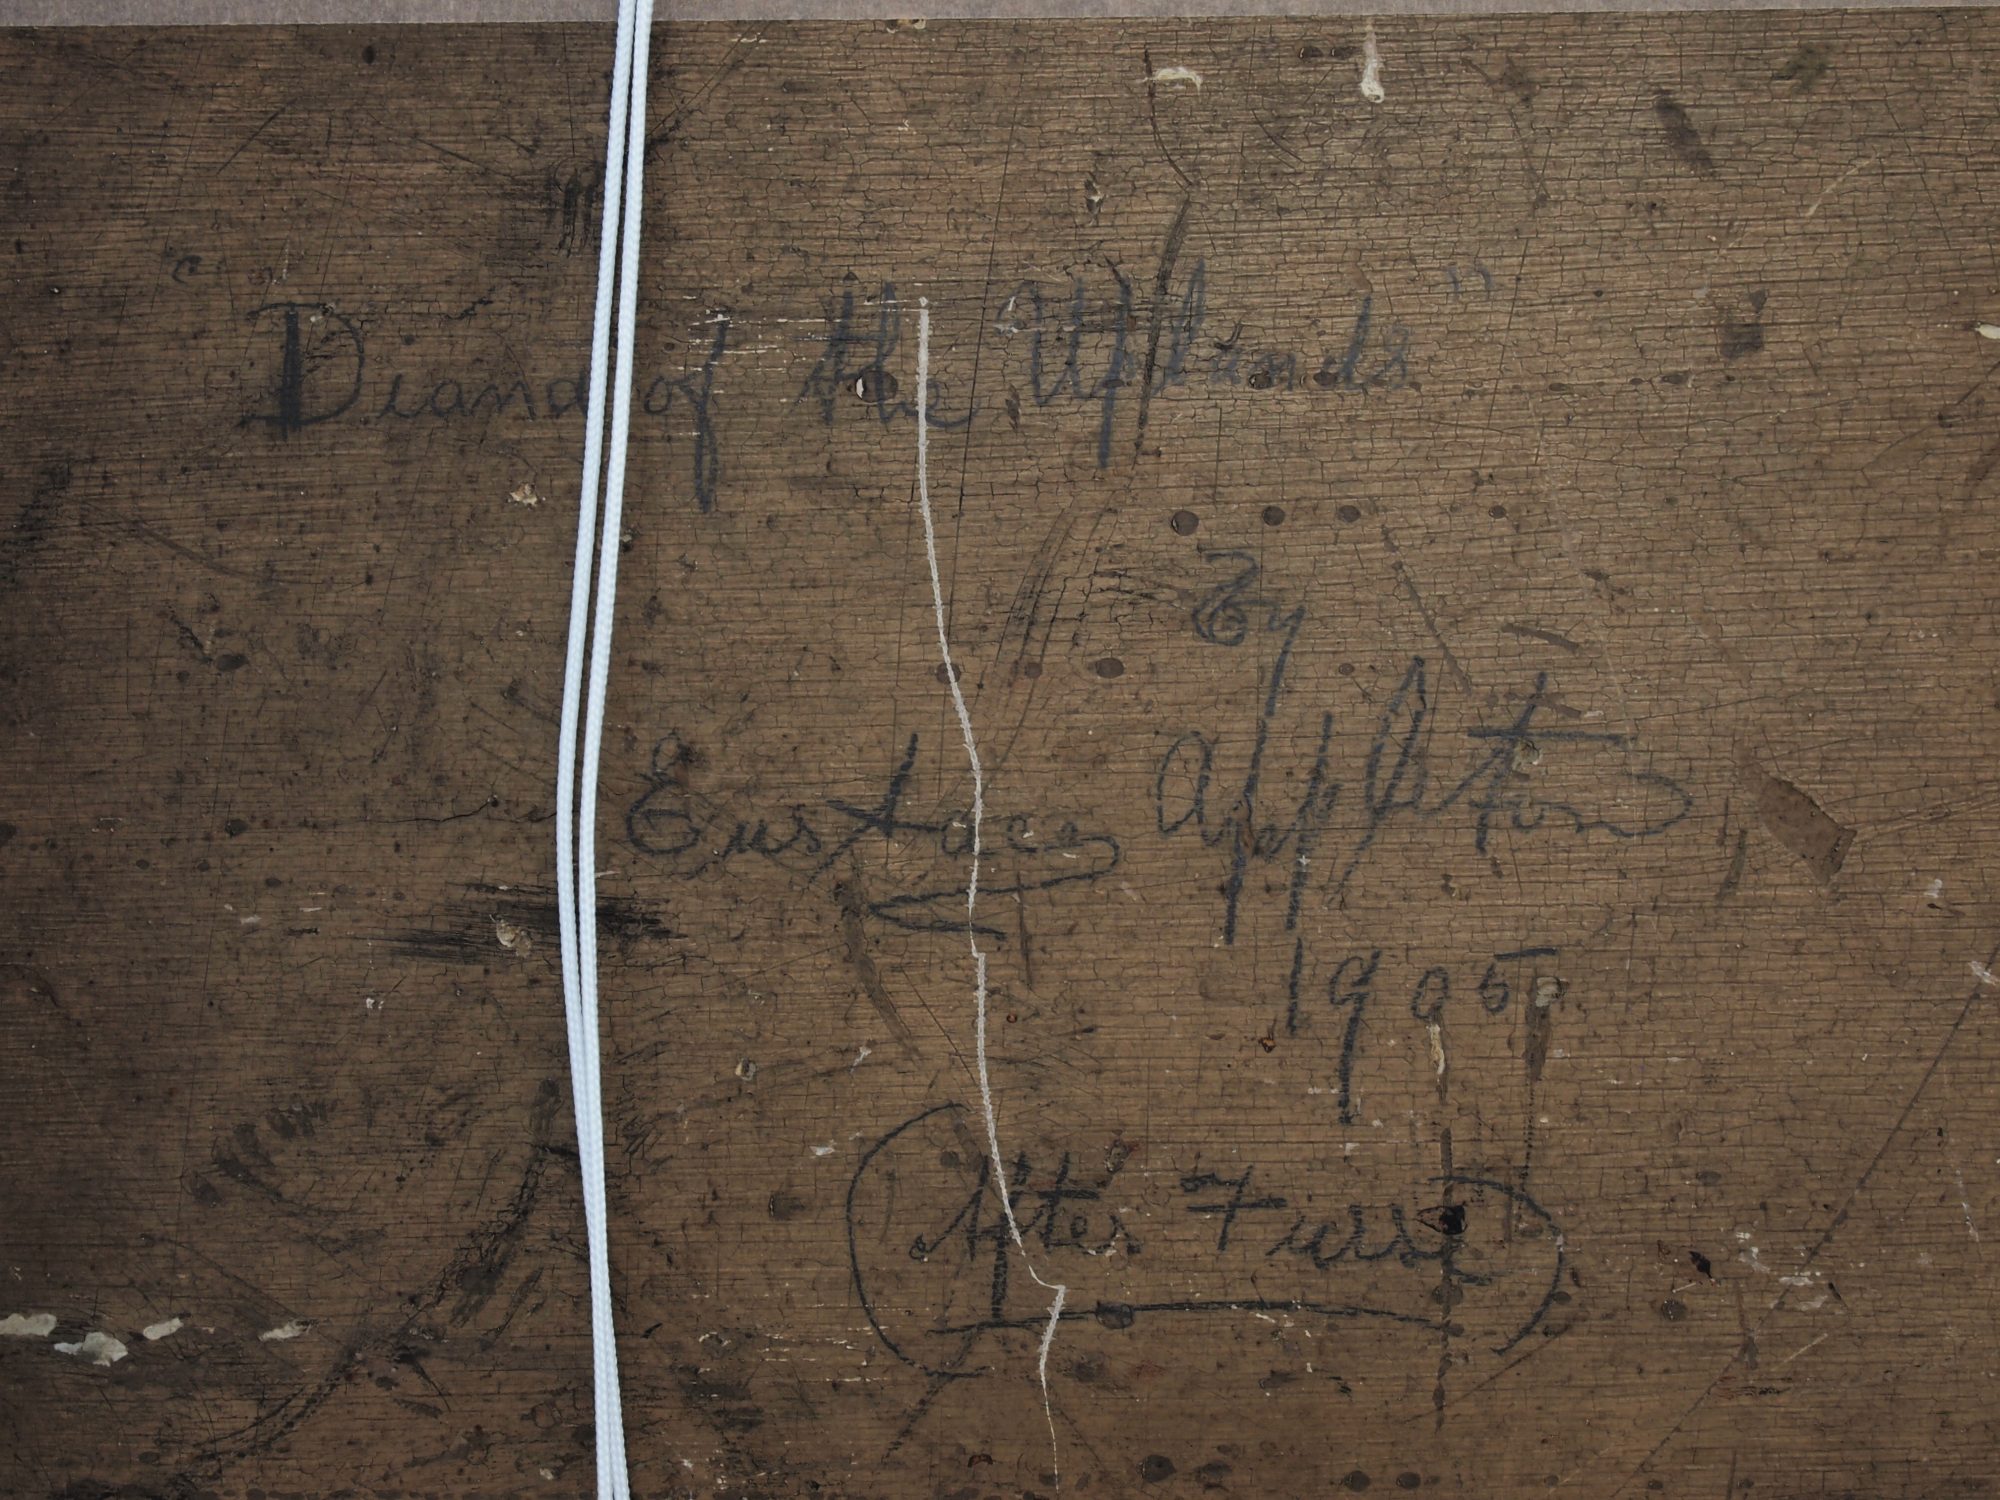 "Diana of the Uplands"
By
Eustace Appleton
1905
(After Furse)